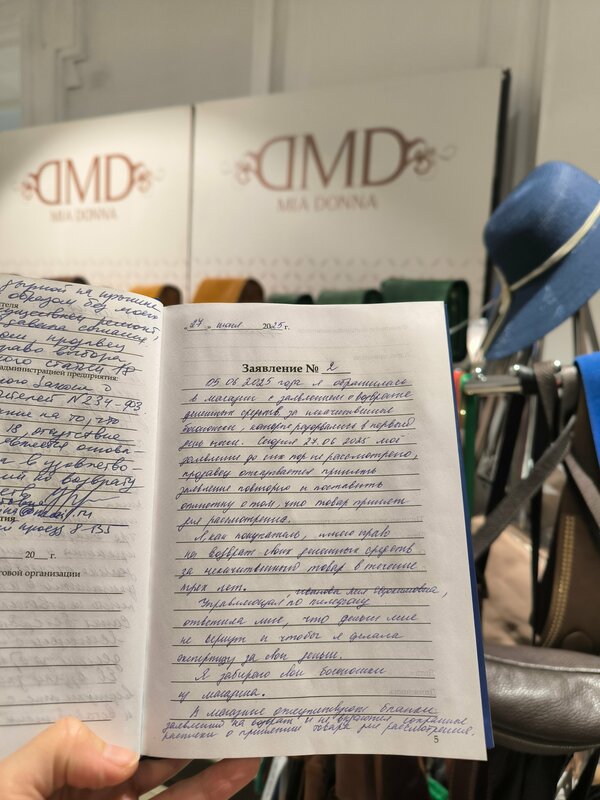 DMD
MIA DONNA
DMD
MIA DONNA
дырой на
образом без моего
существлен ремонт,
согласия.
продавец
право выбора
ст. 18
администрацией предприятия:
№ 234-ФЗ.
18, отсутствие
является основа-
в удовлетво-
возврату
проезд 8-135
20 г.
говой организации
„27„ июня 2025 г.
Заявление № 2
05.06 2025 года я обратилась
в магазин с заявлением о возврате
денежных средств за некачественные
босоножки, которые разорвались в первый
день носки. Сегодня 27.06 2025 мое
заявление до сих пор не рассмотрено,
продавец отказывается принять
заявление повторно и поставить
отметку о том, что товар принят
для рассмотрения.
Я как покупатель, имею право
на возврат своих денежных средств
за некачественный товар в течение
трех лет.
Управляющая, по телефону
ответила мне, что деньги мне
не вернут и чтобы я делала
экспертизу за свои деньги.
Я забираю свои босоножки
из магазина.
В магазине отсутствуют бланки
заявлений на возврат и не выдаются
расписки о принятии товара для рассмотрения.
5